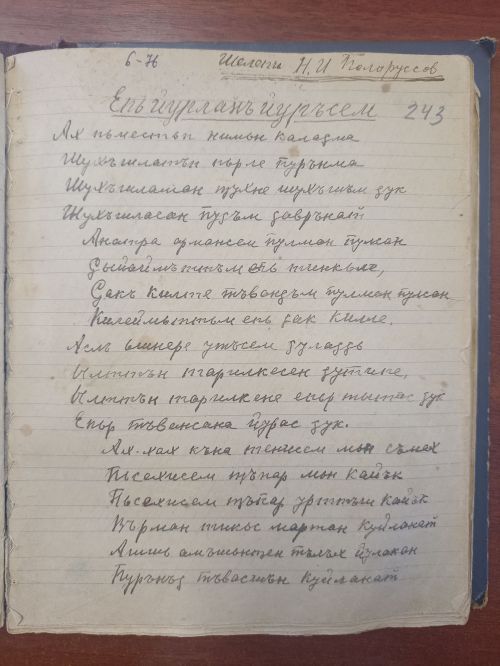 6-76 Шелепи Н. И Полоруссов
Епъ йурланъ йуръсем 243
Ах пъместъп нимън каладма
Шухъшлатън пърле пурънма
Шухъшламан тухне шухъшъм дук
Шухъшласан пудъм даврънат
Анатра армансем пулман пулсан
килттъм епъ тинкъле,
Сакъ килте тъвандъм пулман пулсан
Килеймъттъм епъ сак килле.
Асла вшнере утъсем дуладдъ
Ылттън тарилкесен дутипе,
Ылттън тарилкене епър тытас дук
Епър тъвансана йурас дук.
Ах-хах къна тенисем мън съмах
Пъсехисем тъпар мън кайък
Пъсехисем тъпар урттъш кайък
Върман тикъс мартан куйланат
Ашшъ амъшънтен тълъх йулахан
Пурънъд тъвасшън куйланат